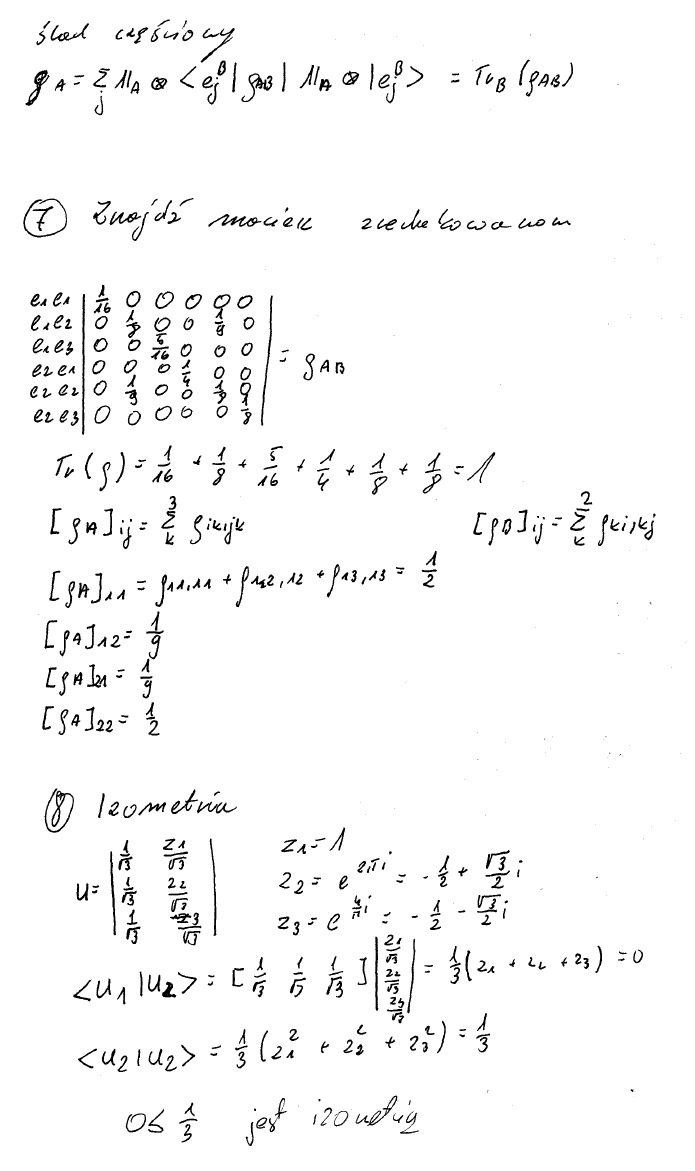 ślad częściowy
ρ_A = Σ_j 𝟙_A ⊗ <e_j^B| ρ_AB | 𝟙_A ⊗ |e_j^B> = Tr_B (ρ_AB)
⑦ Znajdź macierz zredukowaną
e1e1 | 1/16 0 0 0 0 0 |
e1e2 | 0 1/8 0 0 1/9 0 |
e1e3 | 0 0 5/16 0 0 0 | = ρ_AB
e2e1 | 0 0 0 1/4 0 0 |
e2e2 | 0 1/9 0 0 1/8 0 |
e2e3 | 0 0 0 0 0 1/8 |
Tr(ρ) = 1/16 + 1/8 + 5/16 + 1/4 + 1/8 + 1/8 = 1
[ρ_A]_ij = Σ_k^3 ρ_ikjk [ρ_B]_ij = Σ_k^2 ρ_ki,kj
[ρ_A]_11 = ρ_11,11 + ρ_12,12 + ρ_13,13 = 1/2
[ρ_A]_12 = 1/9
[ρ_A]_21 = 1/9
[ρ_A]_22 = 1/2
⑧ Izometria
u = | 1/√3 z1/√3 | z1 = 1
| 1/√3 z2/√3 | z2 = e^{2πi} = -1/2 + √3/2 i
| 1/√3 z3/√3 | z3 = e^{4/π i} = -1/2 - √3/2 i
<u1|u2> = [1/√3 1/√3 1/√3] | z1/√3 z2/√3 z3/√3 | = 1/3 (z1 + z2 + z3) = 0
<u2|u2> = 1/3 (z1^2 + z2^2 + z3^2) = 1/3
0≤ 1/3 jest izometrią